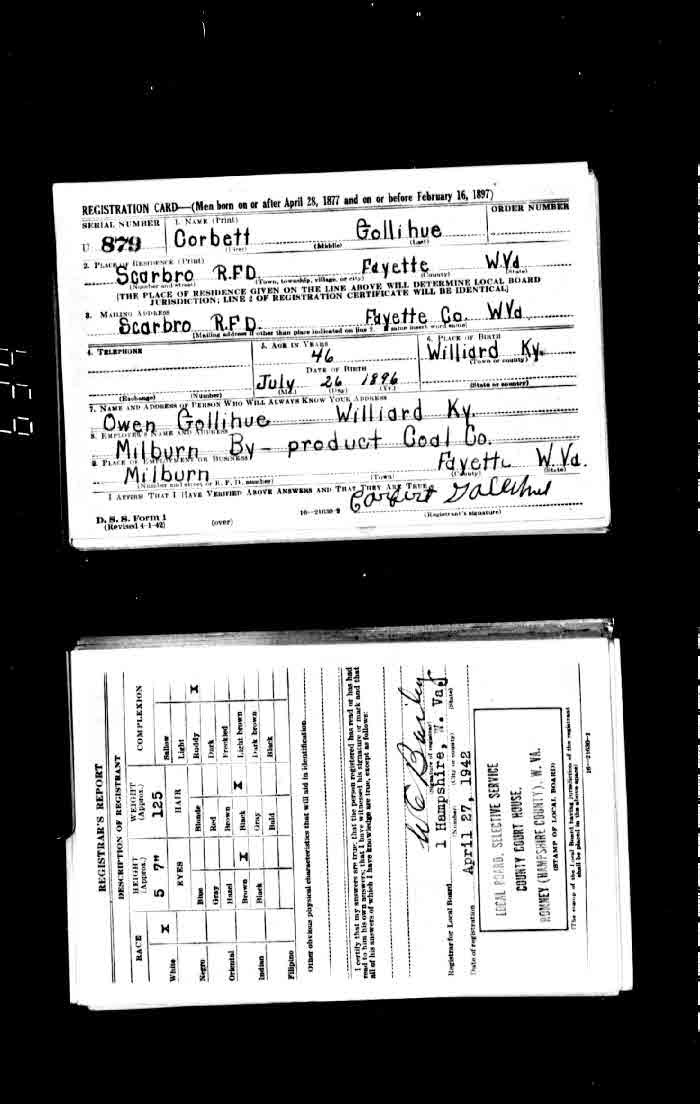 REGISTRATION CARD—(Men born on or after April 28, 1877 and on or before February 16, 1897)
SERIAL NUMBER 1. NAME (Print) ORDER NUMBER
U 879 Corbett Gollihue
(First) (Middle) (Last)
2. PLACE OF RESIDENCE (Print)
Scarbro R.F.D. Fayette W.Va
(Number and street) (Town, township, village, or city) (County) (State)
[THE PLACE OF RESIDENCE GIVEN ON THE LINE ABOVE WILL DETERMINE LOCAL BOARD
JURISDICTION; LINE 2 OF REGISTRATION CERTIFICATE WILL BE IDENTICAL]
3. MAILING ADDRESS
Scarbro R.F.D. Fayette Co. W.Va.
[Mailing address if other than place indicated on line 2. If same insert word same]
4. TELEPHONE 5. AGE IN YEARS 6. PLACE OF BIRTH
46 Williard Ky.
(Town or county)
DATE OF BIRTH
July 26 1896
(Exchange) (Number) (Mo.) (Day) (Yr.) (State or country)
7. NAME AND ADDRESS OF PERSON WHO WILL ALWAYS KNOW YOUR ADDRESS
Owen Gollihue Williard Ky.
8. EMPLOYER'S NAME AND ADDRESS
Milburn By-product Coal Co.
9. PLACE OF EMPLOYMENT OR BUSINESS
Milburn Fayette W.Va.
(Number and street or R. F. D. number) (Town) (County) (State)
I AFFIRM THAT I HAVE VERIFIED ABOVE ANSWERS AND THAT THEY ARE TRUE.
D. S. S. Form 1
(Revised 4-1-42) (over) 16—21630-2 (Registrant's signature)
REGISTRAR'S REPORT
DESCRIPTION OF REGISTRANT
RACE HEIGHT (Approx.) WEIGHT (Approx.) COMPLEXION
5 7" 125
White X EYES HAIR Sallow
Light
Negro Blue Blonde Ruddy X
Gray Red Dark
Oriental Hazel Brown Freckled
Brown X Black X Light brown
Indian Black Gray Dark brown
Bald Black
Filipino
Other obvious physical characteristics that will aid in identification
I certify that my answers are true; that the person registered has read or has had
read to him his own answers; that I have witnessed his signature or mark and that
all of his answers of which I have knowledge are true, except as follows:
(Signature of registrar)
Registrar for Local Board 1 Hampshire, W. Va.
(Number) (City or county) (State)
Date of registration April 27, 1942
LOCAL BOARD, SELECTIVE SERVICE
COUNTY COURT HOUSE,
ROMNEY (HAMPSHIRE COUNTY), W. VA.
(STAMP OF LOCAL BOARD)
(The stamp of the Local Board having jurisdiction of the registrant
shall be placed in the above space)
16—21630-1